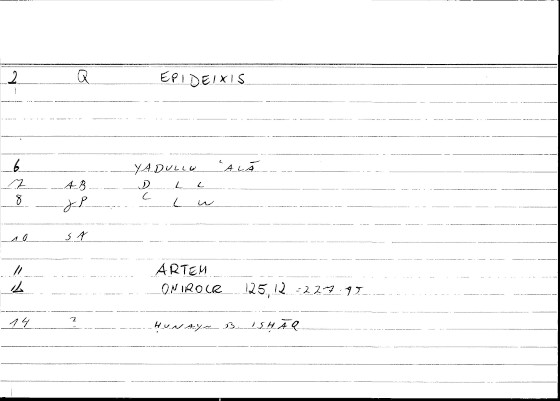 2 Q EPIDEIXIS
6 YADULLU ʿALĀ
7 AB D L L
8 JP C L W
10 SN
11 ARTEM
12 ONIROCR 125,12 = 227.95
14 ? HUNAYN B. ISHĀQ